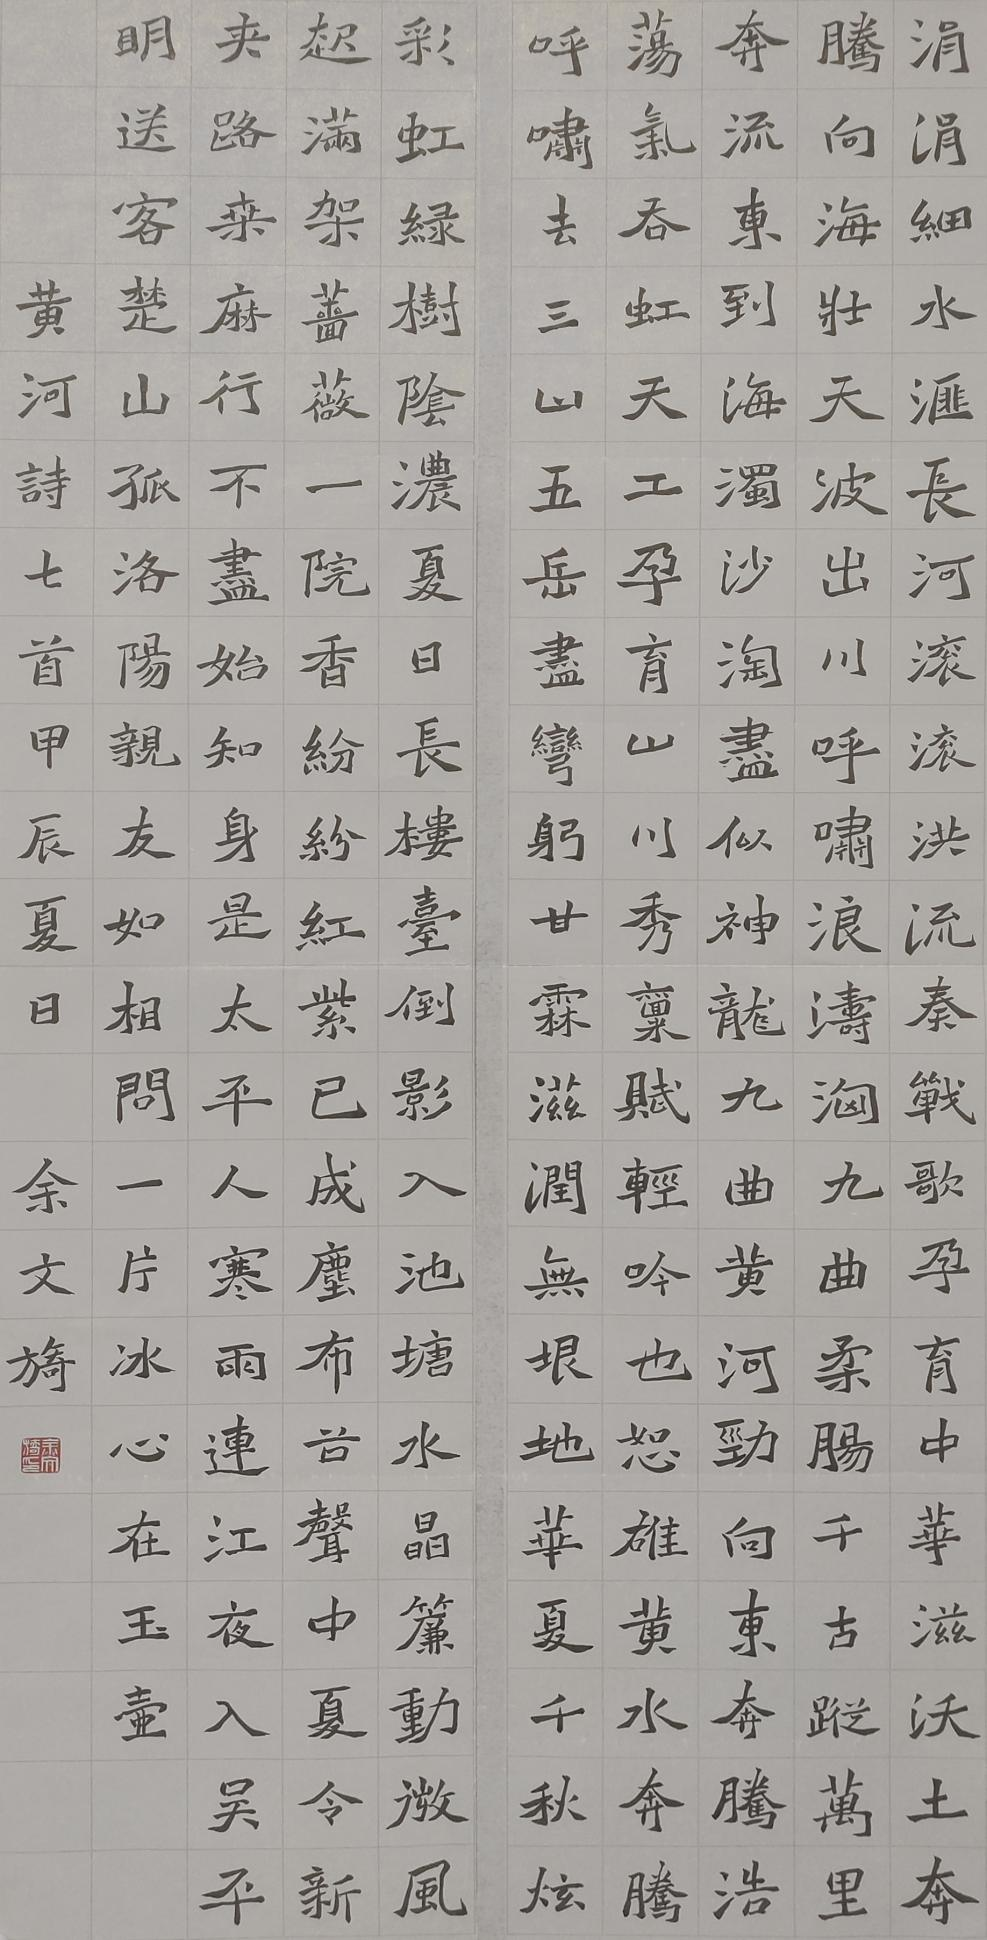 涓涓細水滙長河滚滚洪流奏戰歌孕育中華滋沃土奔
騰向海壯天波出川呼嘯浪濤洶九曲柔腸千古蹤萬里
奔流東到海濁沙淘盡似神龍九曲黄河勁向東奔騰浩
蕩氣吞虹天工孕育山川秀稟賦輕吟也恕雄黄水奔騰
呼嘯去三山五岳盡彎躬甘霖滋潤無垠地華夏千秋炫
彩虹緑樹陰濃夏日長樓臺倒影入池塘水晶簾動微風
起滿架薔薇一院香紛紛紅紫已成塵布谷聲中夏令新
夹路桒麻行不盡始知身是太平人寒雨連江夜入吴平
明送客楚山孤洛陽親友如相問一片冰心在玉壺
黄河詩七首甲辰夏日 余文旖